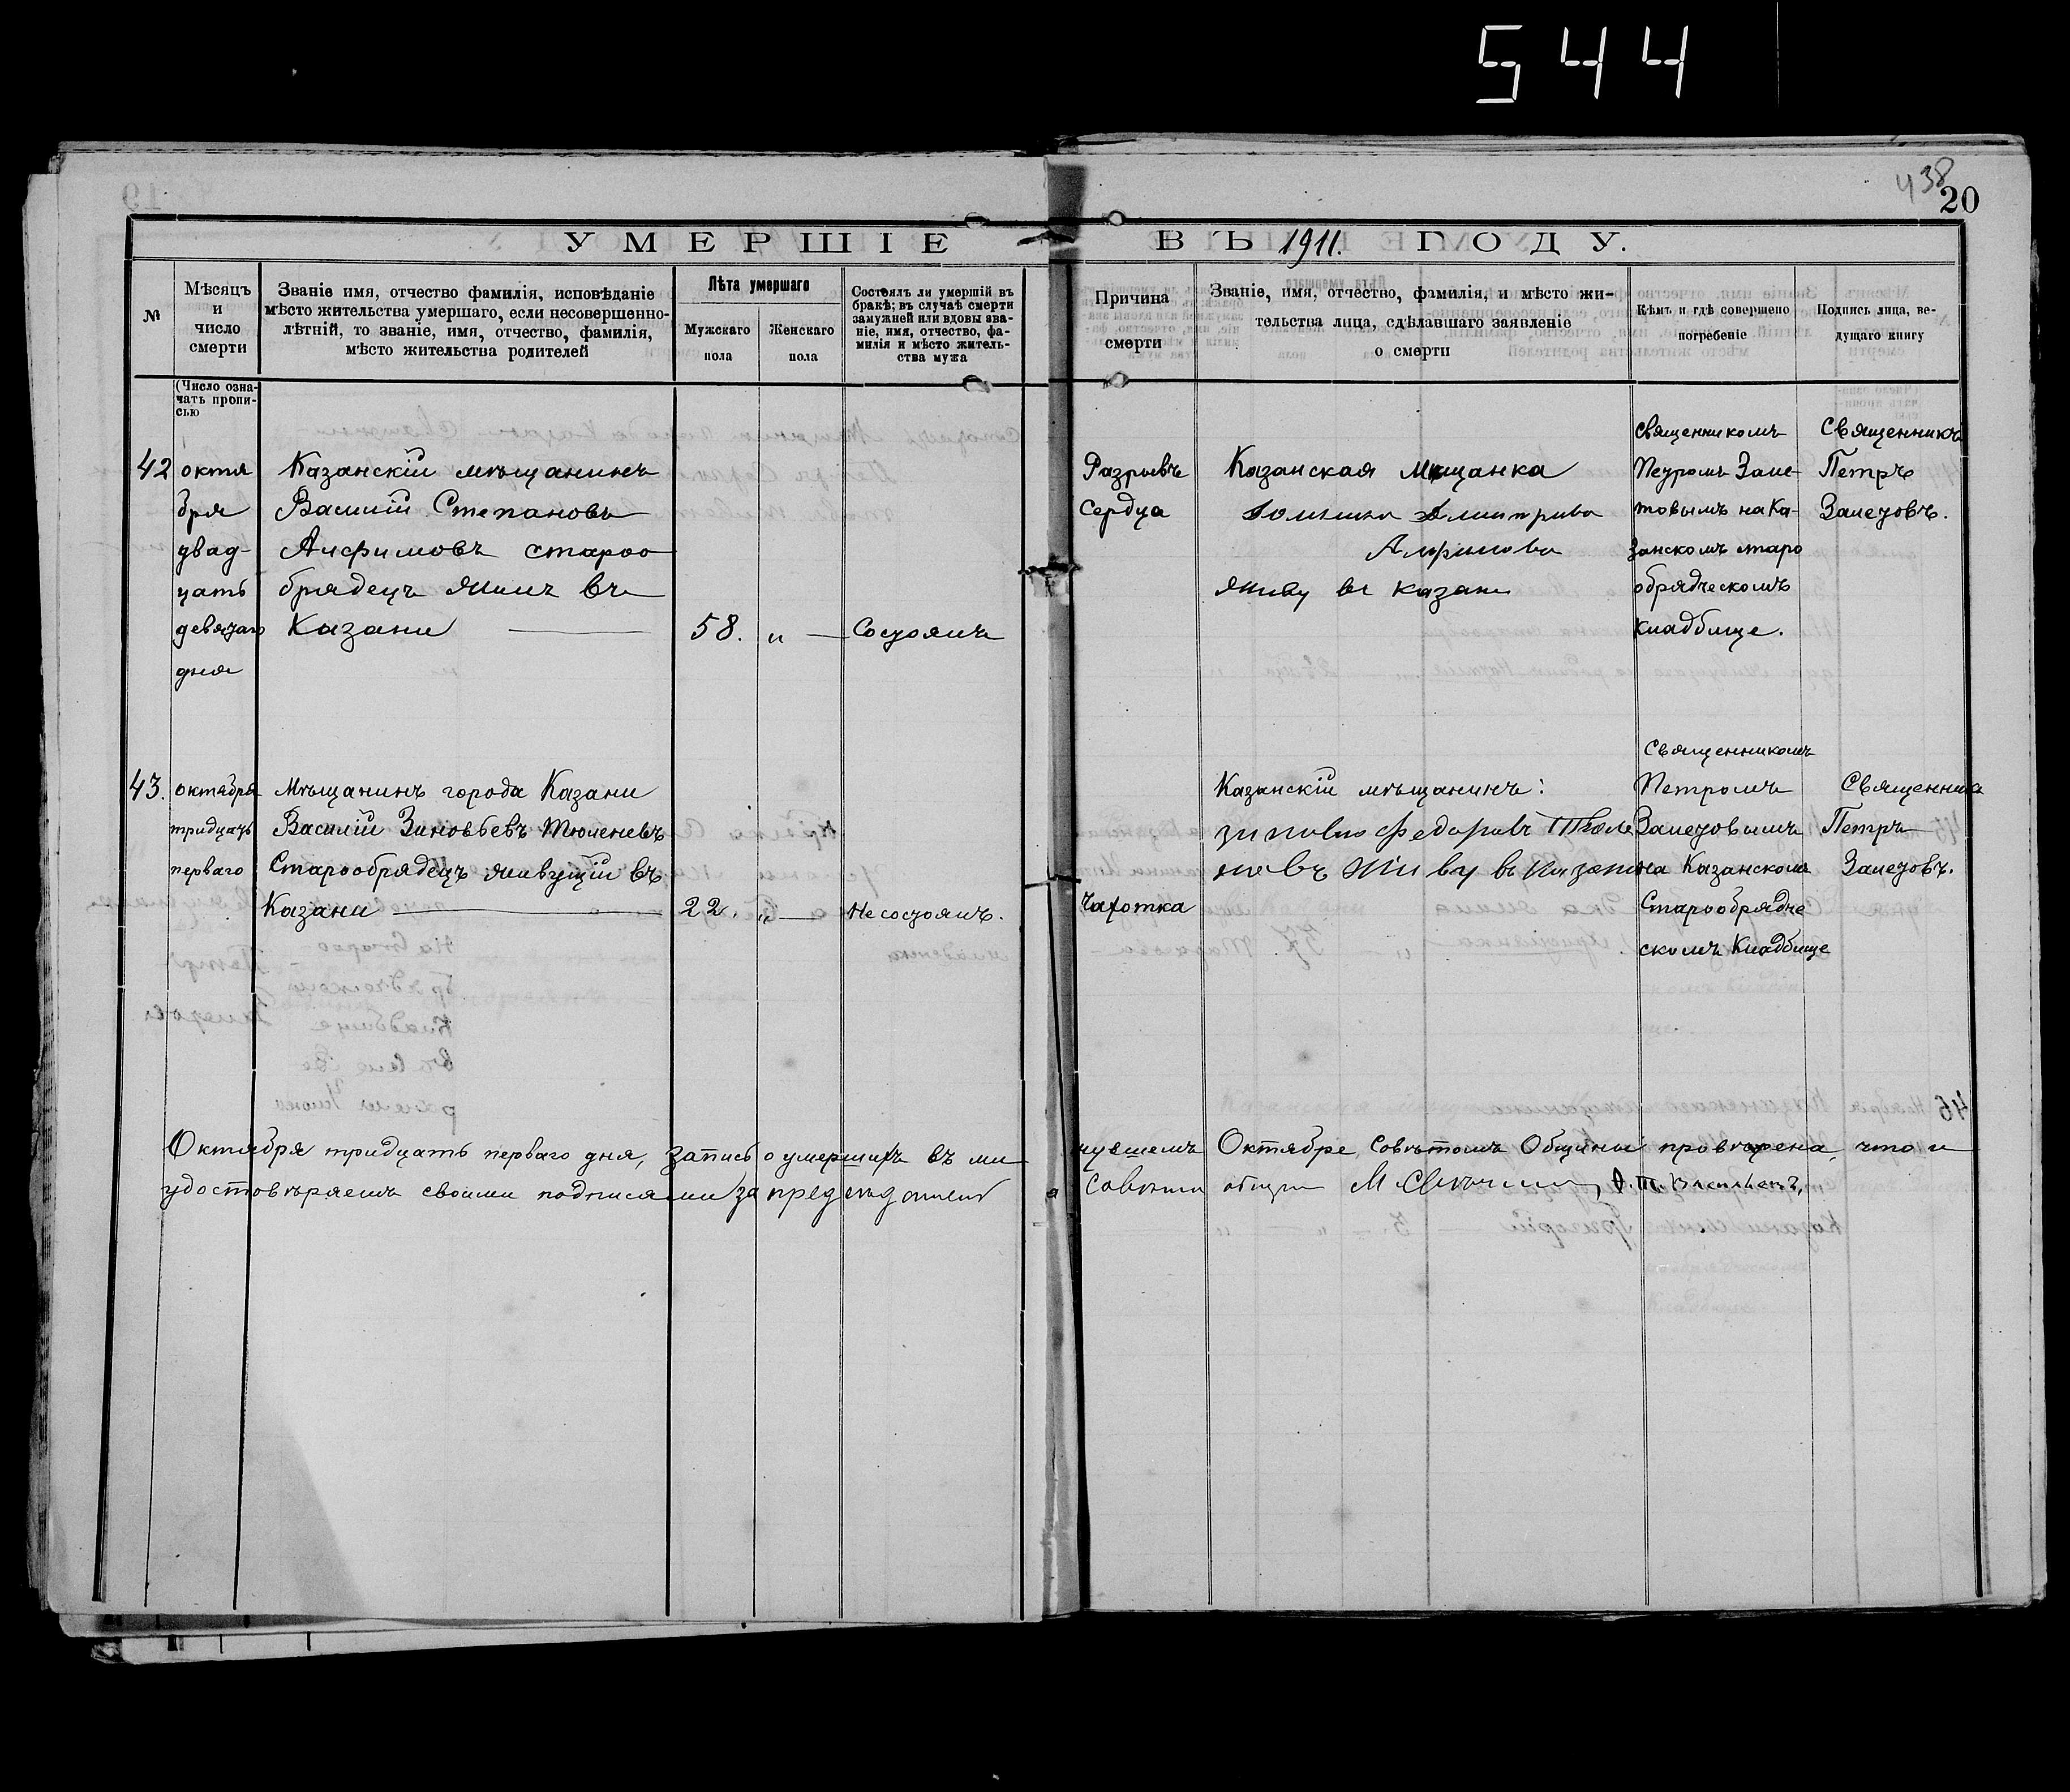 544
438
20
УМЕРШІЕ ВЪ 1911. ГОДУ.
№
Мѣсяцъ
и
число
смерти
Званіе имя, отчество фамилія, исповѣданіе
мѣсто жительства умершаго, если несовершенно-
лѣтній, то званіе, имя, отчество, фамилія,
мѣсто жительства родителей
Лѣта умершаго
Мужскаго
пола
Женскаго
пола
Состоялъ ли умершій въ
бракѣ; въ случаѣ смерти
замужней или вдовы зва-
ніе, имя, отчество, фа-
милія и мѣсто житель-
ства мужа
Причина
смерти
Званіе, имя, отчество, фамилія, и мѣсто жи-
тельства лица, сдѣлавшаго заявленіе
о смерти
Кѣмъ и гдѣ совершено
погребеніе
Подпись лица, ве-
дущаго книгу
(Число озна-
чать пропи-
сью
42
октя
бря
двад-
цать
девятаго
дня
Казанскій мѣщанинъ
Василій Степановъ
Алфимовъ старо
брядецъ жилъ въ
Казани
58.
„
Состоялъ
Разрывъ
Сердца
Казанская Мѣщанка
Алфимова
живу въ Казани
священникомъ
Петромъ Зале-
товымъ на Ка-
занскомъ старо
обрядческомъ
кладбище.
Священникъ
Петръ
Залетовъ.
43.
октября
тридцать
перваго
Мѣщанинъ города Казани
Василій Зиновьевъ Тюленевъ
Старообрядецъ живущій въ
Казани
22.
„
Не состоялъ.
Чахотка
Казанскій мѣщанинъ:
Зиновiй Федоровъ Тюле
невъ живу въ Казани
Священникомъ
Петромъ
Залетовымъ
на Казанскомъ
Старообрядче
скомъ Кладбище
Священникъ
Петръ
Залетовъ.
Октября тридцать перваго дня, запись о умершихъ въ ми
нувшемъ Октябре, Совѣтомъ Общины провѣрена, что и
удостовѣряемъ своими подписями за председателя
Совѣта общины М Ф. Т. Васильевъ,